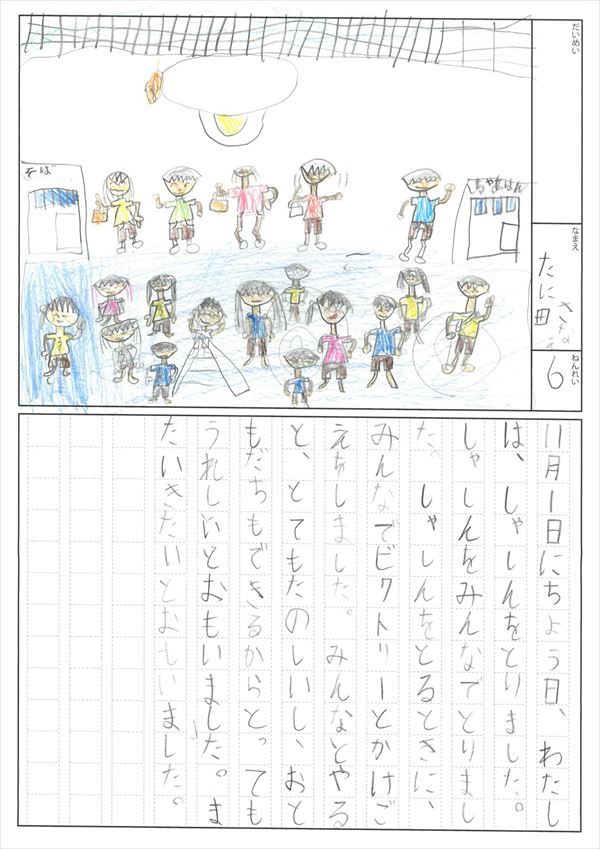 だいめい
なまえ
たに田
ねんれい
6
そば
ちゃあはん
11月1日にちよう日、わたし
は、しゃしんをとりました。
しゃしんをみんなでとりまし
た。しゃしんをとるときに、
みんなでビクトリーとかけご
えをしました。みんなとやる
と、とてもたのしいし、おと
もだちもできるからと。ても
うれしいとおもいました。ま
たいきたいとおもいました。